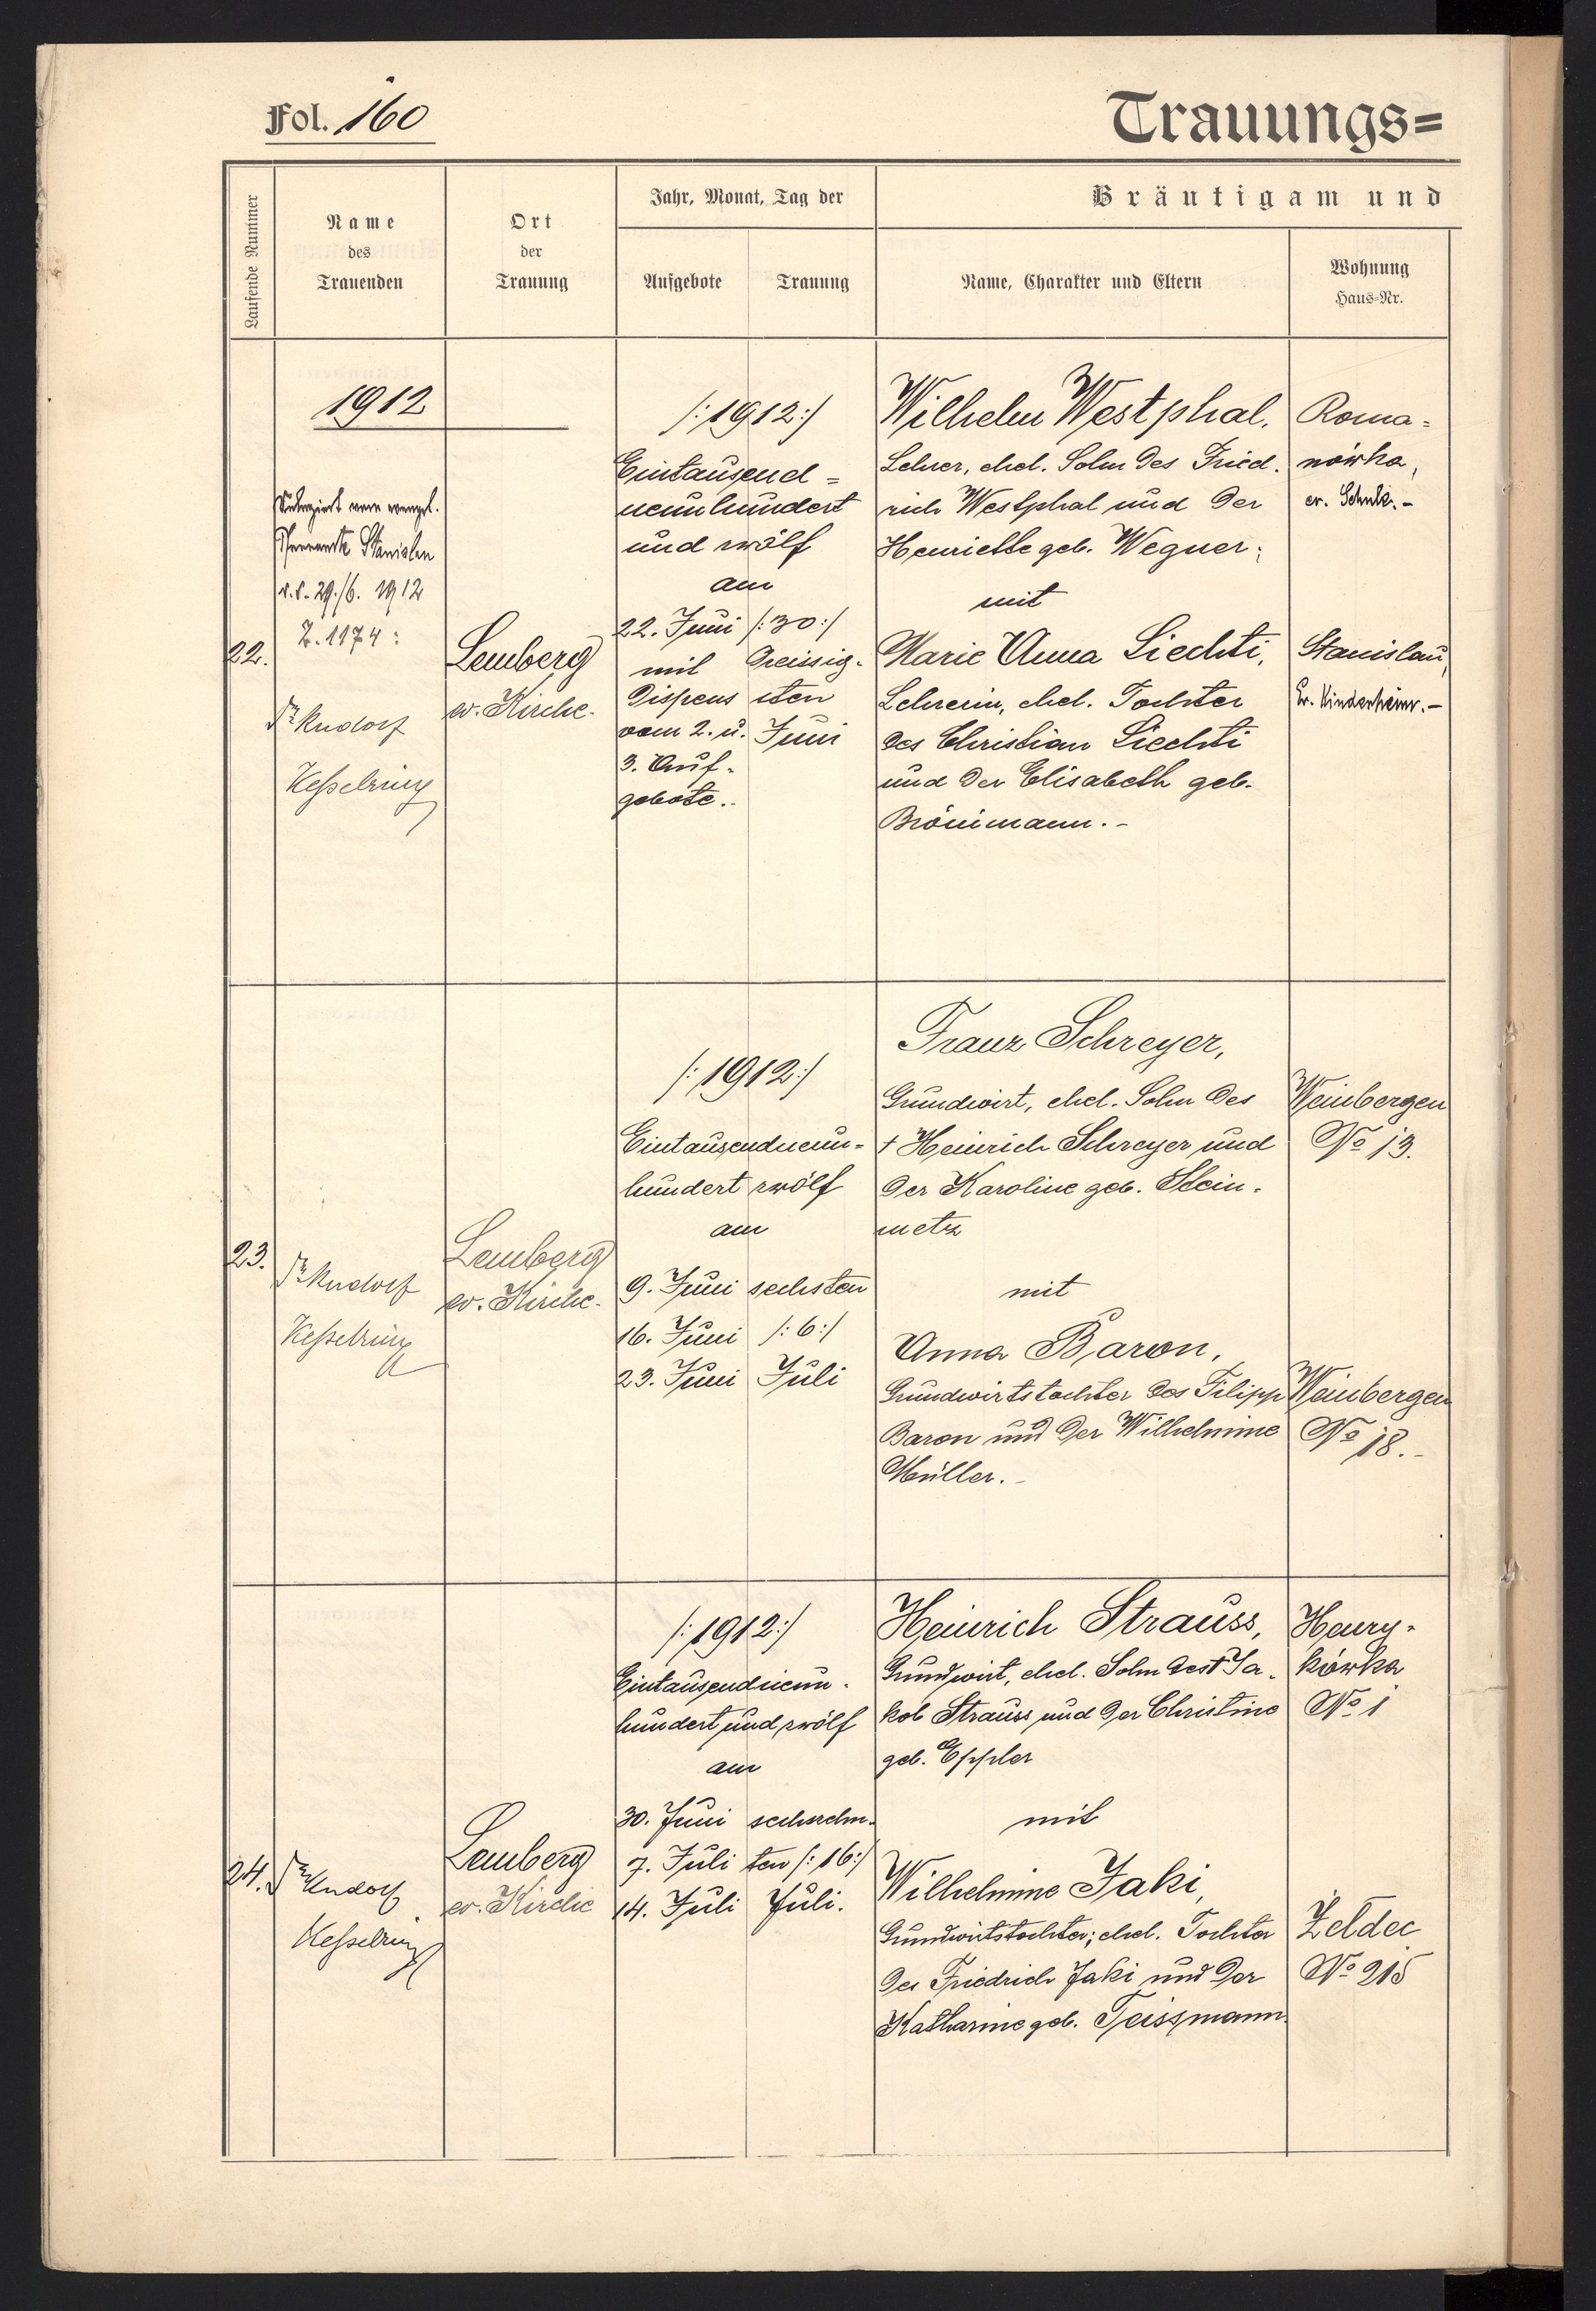 Fol. 160
Trauungs=
Laufende Nummer
Name
des
Trauenden
Ort
der
Trauung
Jahr, Monat, Tag der
Aufgebote
Trauung
Bräutigam und
Name, Charakter und Eltern
Wohnung
Haus-Nr.
1912
Stanislau
v. 29./6. 1912
Z. 1174:
22.
Dr Rudolf
Kesselring
Lemberg
ev. Kirche.
/:1912:/
Eintausend=
neunhundert
und zwölf
am
22. Juni
mit
Dispens
vom 2. u.
3. Auf-
gebote.
/:30:/
dreissig-
sten
Juni
Wilhelm Westphal,
Lehrer, ehel. Sohn des Fried-
rich Westphal und der
Henriette geb. Wegner;
mit
Marie Anna Liechti,
Lehrerin, ehel. Tochter
des Christian Liechti
und der Elisabeth geb.
Brönimann.-
Roma=
nówka,
ev. Schule.-
Stanislau,
Ev. Kinderheim.-
23.
Dr Rudolf
Kesselring
Lemberg
ev. Kirche.
/:1912:/
Eintausendneun=
hundert zwölf
am
9. Juni
16. Juni
23. Juni
sechsten
/:6:/
Juli
Franz Schreyer,
Grundwirt, ehel. Sohn des
† Heinrich Schreyer und
der Karoline geb. Stein-
metz
mit
Anna Baron,
Grundwirtstochter des Filipp
Baron und der Wilhelmine
Müller.-
Weinbergen
No 13.
Weinbergen
No 18.-
24.
Dr Rudolf
Kesselring
Lemberg
ev. Kirche
/:1912:/
Eintausendneun-
hundert und zwölf
am
30. Juni
7. Juli
14. Juli
sechzehn-
ten /:16:/
Juli.
Heinrich Strauss,
Grundwirt, ehel. Sohn des † Ja-
kob Strauss und der Christine
geb. Eppler
mit
Wilhelmine Jaki,
Grundwirtstochter; ehel. Tochter
des Friedrich Jaki und der
Katharine geb. Teissmann.
Henry-
kówka
No 1
Żeldec
No 215